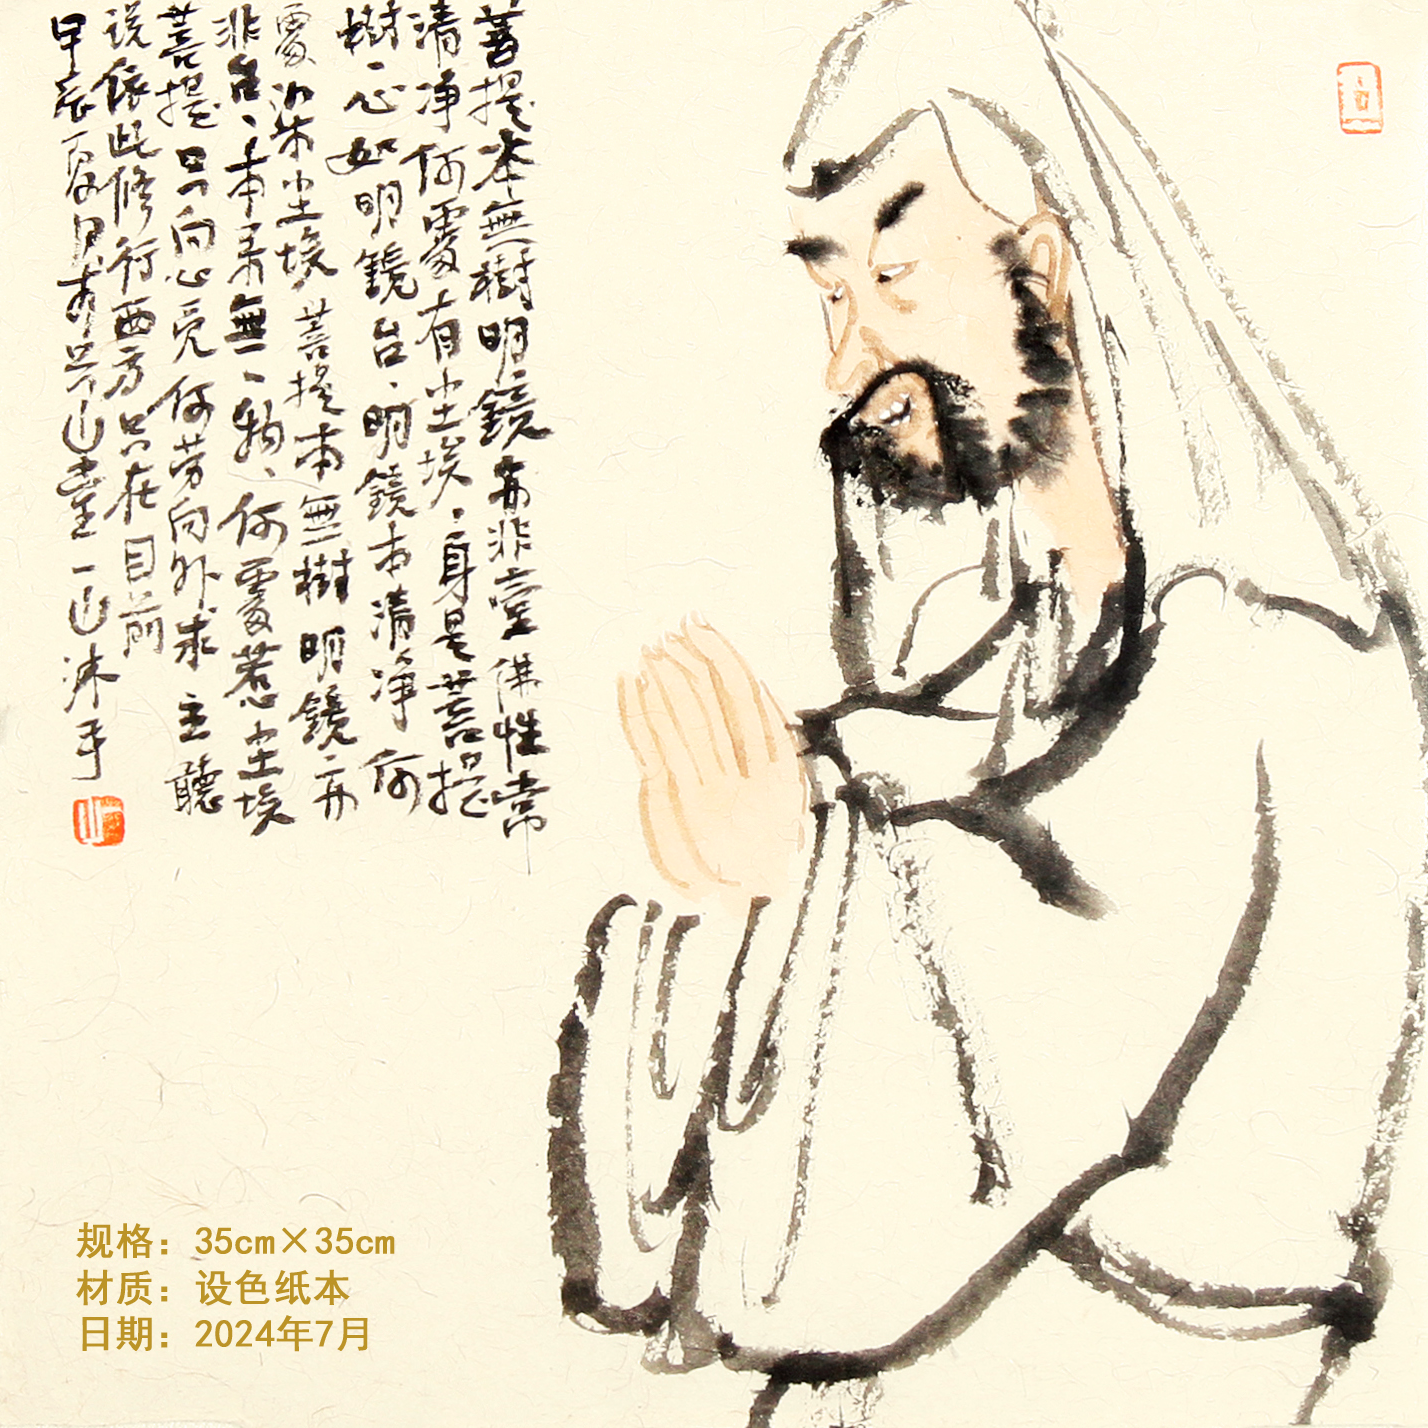 菩提本無樹明鏡亦非臺佛性常
清净何處有尘埃身是菩提
樹心如明鏡台明鏡本清净何
處染尘埃菩提本無樹明鏡亦
非台本来無一物何處惹尘埃
菩提只向心觅何劳向外求玄聽
说依此修行西方只在目前
甲辰夏月山堂一山沐手
规格：35cm×35cm
材质：设色纸本
日期：2024年7月